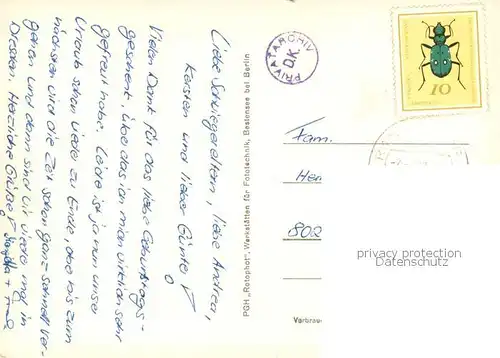 Liebe Schwiegereltern, liebe Andrea,
Kersten und lieber Günter!
Vielen Dank für das liebe Geburtstags-
geschenk, über das ich mich wirklich sehr
gefreut habe. Leider ist ja nun unser
Urlaub schon wieder zu Ende, aber bis zum
nächsten wird die Zeit schon ganz schnell ver-
gehen und dann sind wir wieder mal in
Dresden. Herzliche Grüße
PGH „Rotophot", Werkstätten für Fototechnik, Bestensee bei Berlin
PRIVATARCHIV
D.K.
10
Fam.
Her
802
privacy protection
Datenschutz
Verbrau